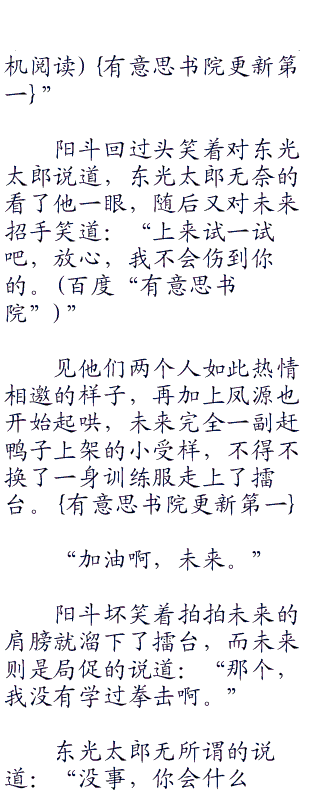 机阅读) {有意思书院更新第
一} ”
阳斗回过头笑着对东光
太郎说道，东光太郎无奈的
看了他一眼，随后又对未来
招手笑道：“上来试一试
吧，放心，我不会伤到你
的。(百度“有意思书
院”) ”
见他们两个人如此热情
相邀的样子，再加上凤源也
开始起哄，未来完全一副赶
鸭子上架的小受样，不得不
换了一身训练服走上了擂
台。{有意思书院更新第一}
“加油啊，未来。”
阳斗坏笑着拍拍未来的
肩膀就溜下了擂台，而未来
则是局促的说道：“那个，
我没有学过拳击啊。”
东光太郎无所谓的说
道：“没事，你会什么